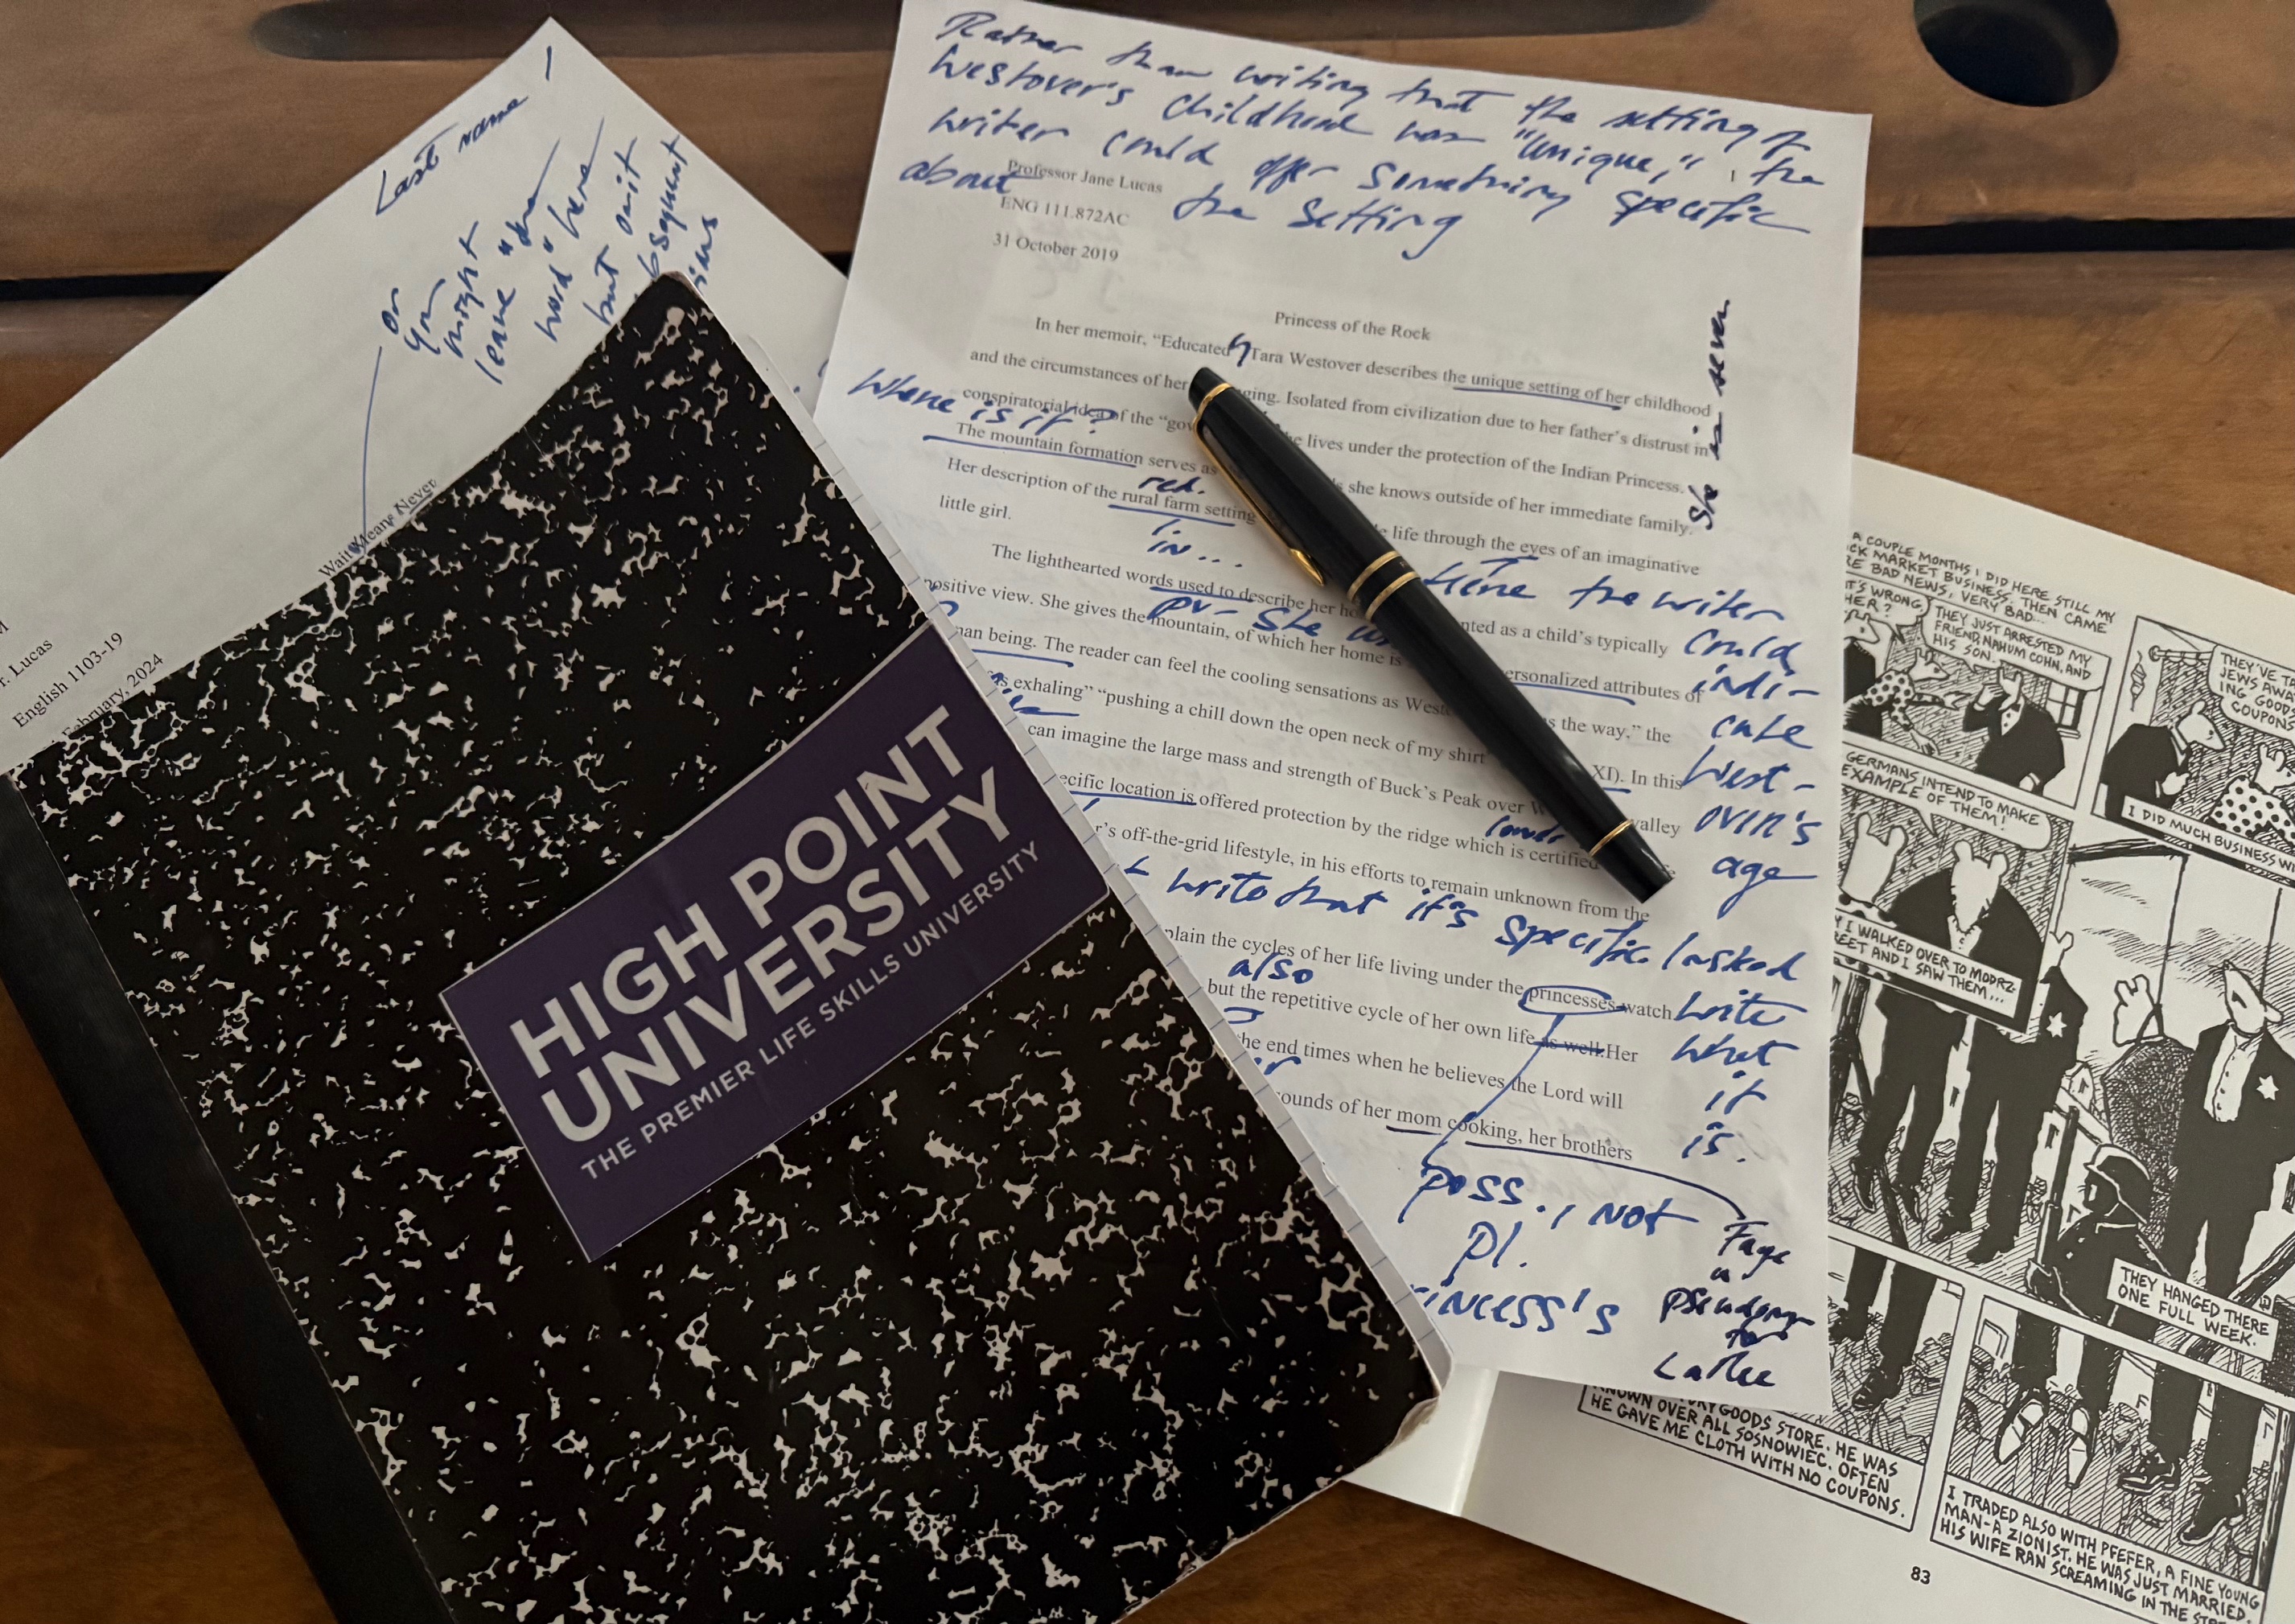 Last name 1
or
you
might
leave "the
word" here
but omit
Wait Means Never
r. Lucas
English 1103-19
February, 2024
HIGH POINT
UNIVERSITY
THE PREMIER LIFE SKILLS UNIVERSITY
Rather than writing that the setting of
Westover's childhood was "unique," the
writer could offer something specific
about the setting
1
Professor Jane Lucas
ENG 111.872AC
31 October 2019
Princess of the Rock
In her memoir, "Educated Tara Westover describes the unique setting of her childhood
and the circumstances of her ging. Isolated from civilization due to her father's distrust in
conspiratorial idea of the "gov he lives under the protection of the Indian Princess.
Where is it?
The mountain formation serves as she knows outside of her immediate family.
red.
Her description of the rural farm setting life through the eyes of an imaginative
little girl.
in...
She is seven
The lighthearted words used to describe her ho nted as a child's typically
positive view. She gives the mountain, of which her home is ersonalized attributes of
pv- She
man being. The reader can feel the cooling sensations as West s the way," the
is exhaling" "pushing a chill down the open neck of my shirt XI). In this
can imagine the large mass and strength of Buck's Peak over W valley
ecific location is offered protection by the ridge which is certified
r's off-the-grid lifestyle, in his efforts to remain unknown from the
Here the writer
could
indi-
cate
West-
over's
age
write that it's specific. Instead
write
what
it
is.
plain the cycles of her life living under the princesses watch
also
but the repetitive cycle of her own life as well. Her
the end times when he believes the Lord will
sounds of her mom cooking, her brothers
poss., not
pl.
rincess's
Faye
a
pseudonym
for
LaRee
A COUPLE MONTHS I DID HERE STILL MY
CK MARKET BUSINESS. THEN CAME
RE BAD NEWS, VERY BAD...
T'S WRONG,
HER?
THEY JUST ARRESTED MY
FRIEND, NAHUM COHN, AND
HIS SON.
THEY'VE TA
JEWS AWA
ING GOODS
COUPONS
I DID MUCH BUSINESS WI
GERMANS INTEND TO MAKE
EXAMPLE OF THEM!
Y I WALKED OVER TO MODRZ-
REET AND I SAW THEM...
THEY HANGED THERE
ONE FULL WEEK.
RY GOODS STORE. HE WAS
KNOWN OVER ALL SOSNOWIEC. OFTEN
HE GAVE ME CLOTH WITH NO COUPONS.
I TRADED ALSO WITH PFEFER, A FINE YOUNG
MAN-A ZIONIST. HE WAS JUST MARRIED.
HIS WIFE RAN SCREAMING IN THE
83